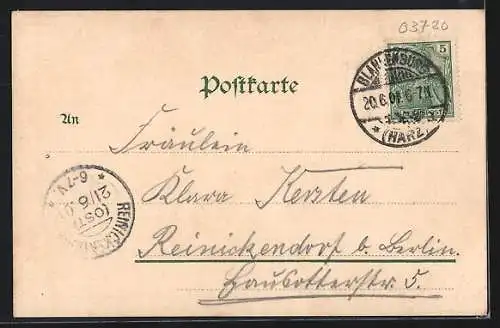 03720
5
BLANKENBURG
20.6.01. 6-7N.
* (HARZ) *
Postkarte
An
Fräulein
Klara Kersten
Reinickendorf b. Berlin.
Hausotterstr. 5.
REINICKENDORF
(OST)
21/6.01
6-7 V.